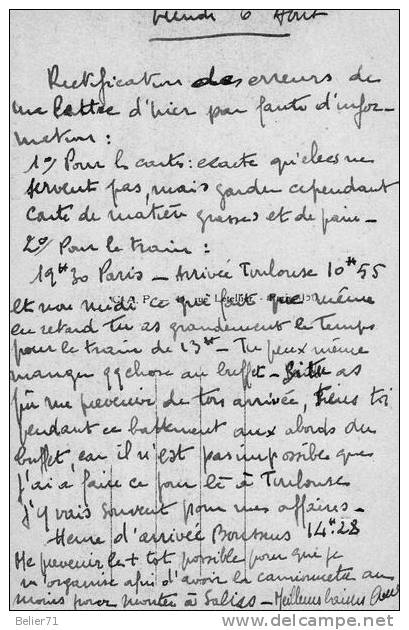 Lundi 6 Août
Rectification des erreurs de
ma lettre d'hier par faute d'infor-
mation :
1º/ Pour les cartes : exacte qu'elles ne
servent pas, mais garder cependant
carte de matière grasses et de pain -
2º/ Pour le train :
19H30 Paris - Arrivée Toulouse 10H55
et non midi ce qui fait que même
en retard tu as grandement le temps
pour le train de 13H - Tu peux même
manger qqchose au buffet - Si tu as
pu me prévenir de ton arrivée, tiens toi
pendant ce battement aux abords du
buffet, car il n'est pas impossible que
j'ai à faire ce jour là à Toulouse
J'y vais souvent pour mes affaires -
Heure d'arrivée Boussens 14H28
Me prévenir le + tot possible pour que je
m'organise afin d'avoir la camionnette au
moins pour monter à Salies - Meilleurs baisers
Belier71
http://www.delcampe.net